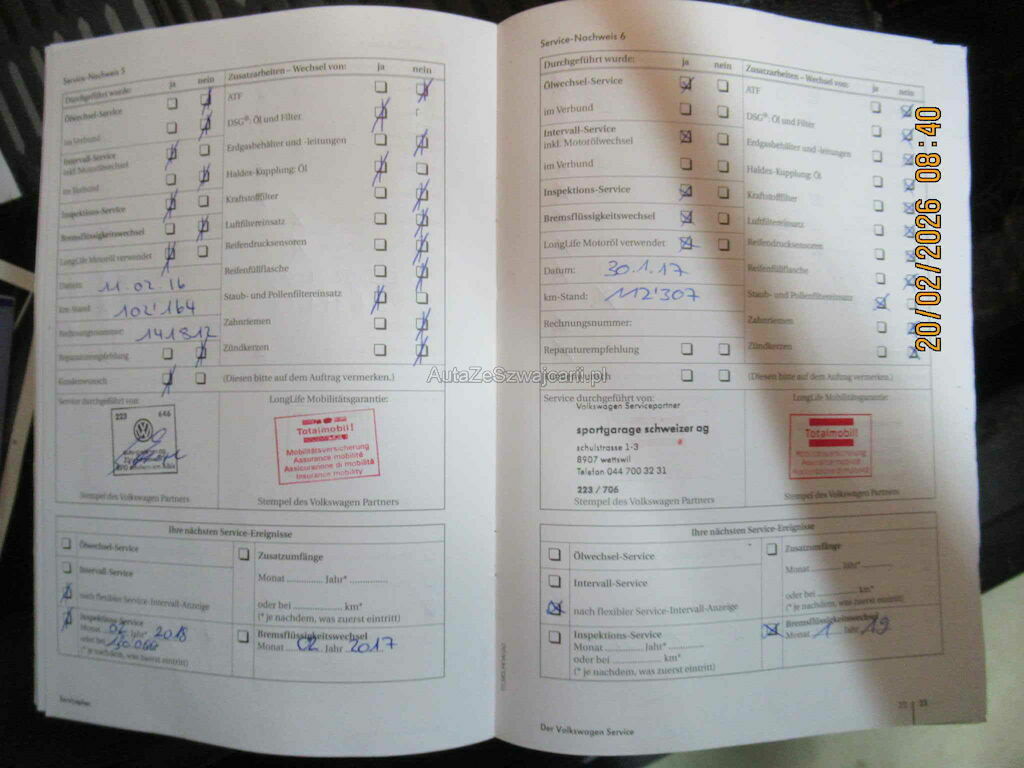 Service-Nachweis 5
Durchgeführt wurde: ja nein
Ölwechsel-Service
im Verbund
Intervall-Service
inkl. Motorölwechsel
im Verbund
Inspektions-Service
Bremsflüssigkeitswechsel
LongLife Motoröl verwendet
Datum: 11.02.16
km-Stand: 102'164
Rechnungsnummer: 141812
Reparaturempfehlung
Kundenwunsch
Zusatzarbeiten – Wechsel von: ja nein
ATF
DSG®: Öl und Filter
Erdgasbehälter und -leitungen
Haldex-Kupplung: Öl
Kraftstofffilter
Luftfiltereinsatz
Reifendrucksensoren
Reifenfüllflasche
Staub- und Pollenfiltereinsatz
Zahnriemen
Zündkerzen
(Diesen bitte auf dem Auftrag vermerken.)
Service durchgeführt von:
223 646
Stempel des Volkswagen Partners
LongLife Mobilitätsgarantie:
Totalmobil!
Mobilitätsversicherung
Assurance mobilité
Assicurazione di mobilità
Insurance mobility
Stempel des Volkswagen Partners
Ihre nächsten Service-Ereignisse
Ölwechsel-Service
Intervall-Service
nach flexibler Service-Intervall-Anzeige
Inspektions-Service
Monat 02 Jahr* 2018
oder bei 130.000
(* je nachdem, was zuerst eintritt)
Zusatzumfänge
Monat ............ Jahr* ............
oder bei ................ km*
(* je nachdem, was zuerst eintritt)
Bremsflüssigkeitswechsel
Monat 02 Jahr 2017
Service-Nachweis 6
Durchgeführt wurde: ja nein
Ölwechsel-Service
im Verbund
Intervall-Service
inkl. Motorölwechsel
im Verbund
Inspektions-Service
Bremsflüssigkeitswechsel
LongLife Motoröl verwendet
Datum: 30.1.17
km-Stand: 112'307
Rechnungsnummer:
Reparaturempfehlung
Zusatzarbeiten – Wechsel von: ja nein
ATF
DSG®: Öl und Filter
Erdgasbehälter und -leitungen
Haldex-Kupplung: Öl
Kraftstofffilter
Luftfiltereinsatz
Reifendrucksensoren
Reifenfüllflasche
Staub- und Pollenfiltereinsatz
Zahnriemen
Zündkerzen
(Diesen bitte auf dem Auftrag vermerken.)
Service durchgeführt von:
Volkswagen Servicepartner
sportgarage schweizer ag
schulstrasse 1-3
8907 wettswil
Telefon 044 700 32 31
223 / 706
Stempel des Volkswagen Partners
LongLife Mobilitätsgarantie:
Totalmobil!
Mobilitätsversicherung
Assurance mobilité
Assicurazione di mobilità
Insurance mobility
Stempel des Volkswagen Partners
Ihre nächsten Service-Ereignisse
Ölwechsel-Service
Intervall-Service
nach flexibler Service-Intervall-Anzeige
Inspektions-Service
Monat ............ Jahr* ............
oder bei ................ km*
(* je nachdem, was zuerst eintritt)
Zusatzumfänge
Monat ............ Jahr* ............
oder bei ................ km*
(* je nachdem, was zuerst eintritt)
Bremsflüssigkeitswechsel
Monat 1 Jahr 19
Der Volkswagen Service
AutaZeSzwajcarii.pl
20/02/2026 08:40